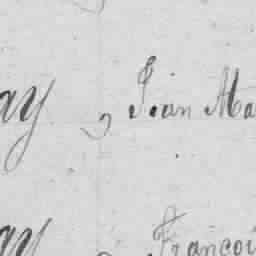 ay, Jean Ma
ay, Françoi